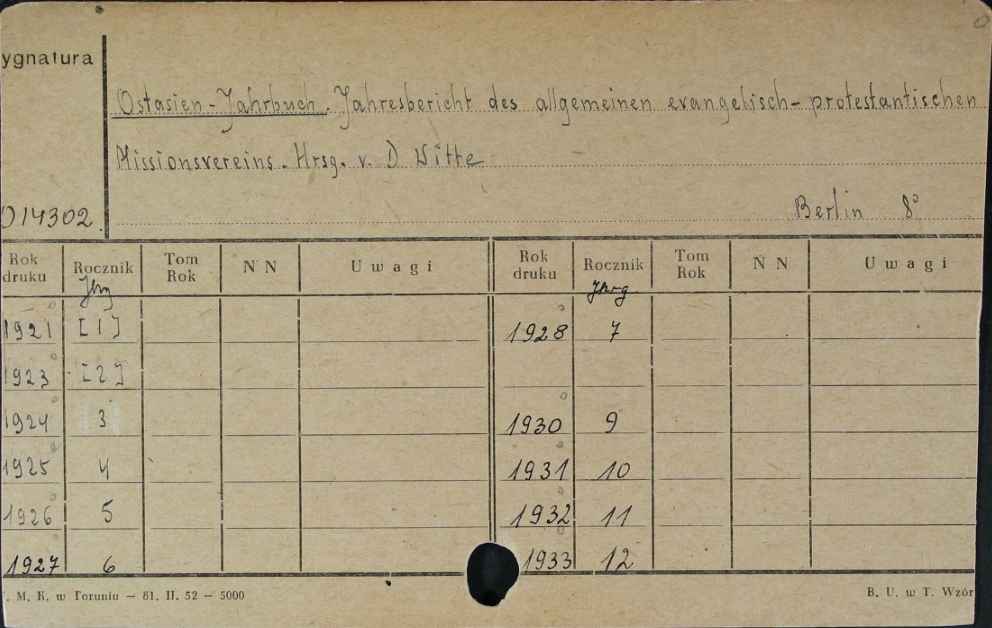 ygnatura
Ostasien-Jahrbuch. Jahresbericht des allgemeinen evangelisch-protestantischen
Missionsvereins. Hrsg. v. D Witte
014302 Berlin 8°
Rok druku Rocznik Tom Rok N N Uwagi Rok druku Rocznik Tom Rok N N Uwagi
Jhrg Jhrg
1921 [1] 1928 7
1923 [2]
1924 3 1930 9
1925 4 1931 10
1926 5 1932 11
1927 6 1933 12
. M. K. w Toruniu — 81. II. 52 — 5000 B. U. w T. Wzór